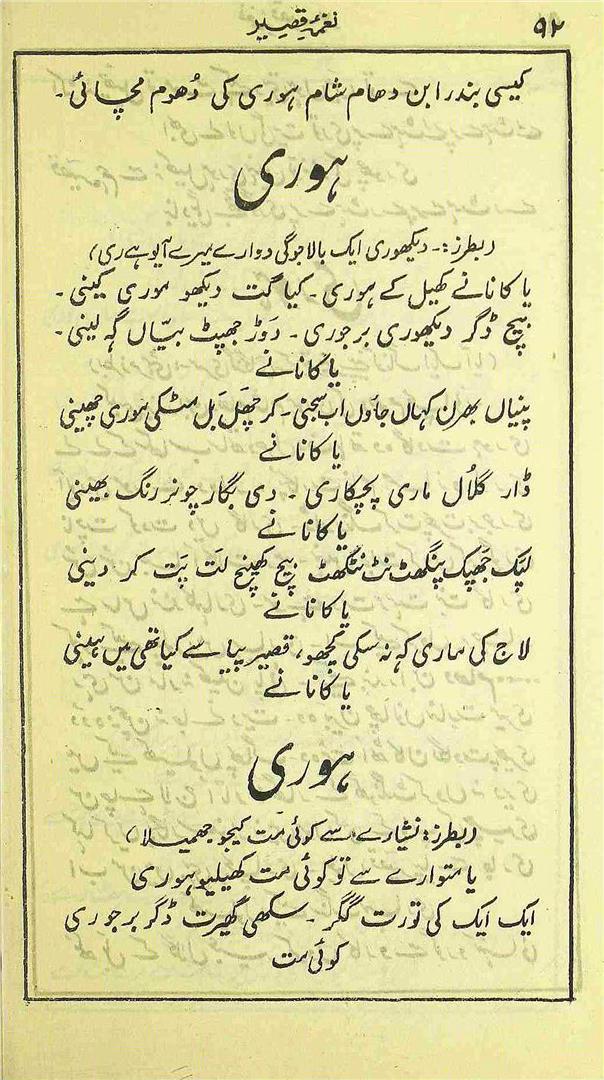 ۹۲
نغمۂ قصیر
کیسی بندرابن دھام شام ہوری کی دُھوم مچائی۔
ہوری
(بطرز:۔ دیکھوری ایک بالا جوگی دوارے میرے آیو ہے ری)
یا کانا نے کھیل کے ہوری۔ کیا گت دیکھو موری کینی۔
بیچ ڈگر دیکھوری برجوری۔ دَوڑ جھپٹ بیّاں گہ لینی۔
یا کانا نے
پنیاں بھرن کہاں جاؤں اب سجنی۔ کر چھَل بَل مٹکی موری چھینی
یا کانا نے
ڈار گلُال ماری پچکاری۔ دی بگار چونر رنگ بھینی
یا کانا نے
لپک جَھپک پنگھٹ نٹ نٹکھٹ بیچ کھینچ لَت پَت کر دینی
یا کانا نے
لاج کی ماری کہ نہ سکی کچھو، قصیر پیا سے کیا تھی میں ہینی
یا کانا نے
ہوری
(بطرز: نشیارے سے کوئی مَت کیجو جھمیلا)
یا متوارے سے تو کوئی مت کھیلیو ہوری
ایک ایک کی تورت گگر۔ سکھی گھیرت ڈگر برجوری
کوئی مت